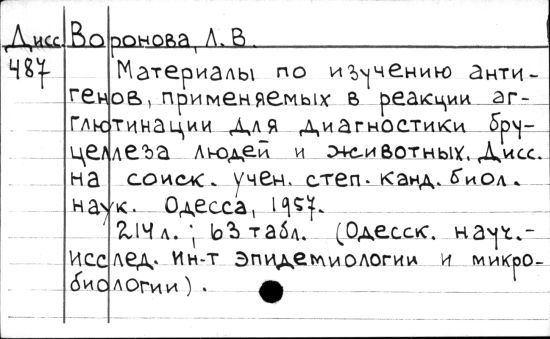 Дисс. Воронова, Л. В.
487 Материалы по изучению анти-
генов, применяемых в реакции аг-
глютинации для диагностики бру-
целлеза людей и животных. Дисс.
на соиск. учен. степ. канд. биол.
наук. Одесса, 1957.
214 л.; 63 табл. (Одесск. науч.-
исслед. ин-т эпидемиологии и микро-
биологии).